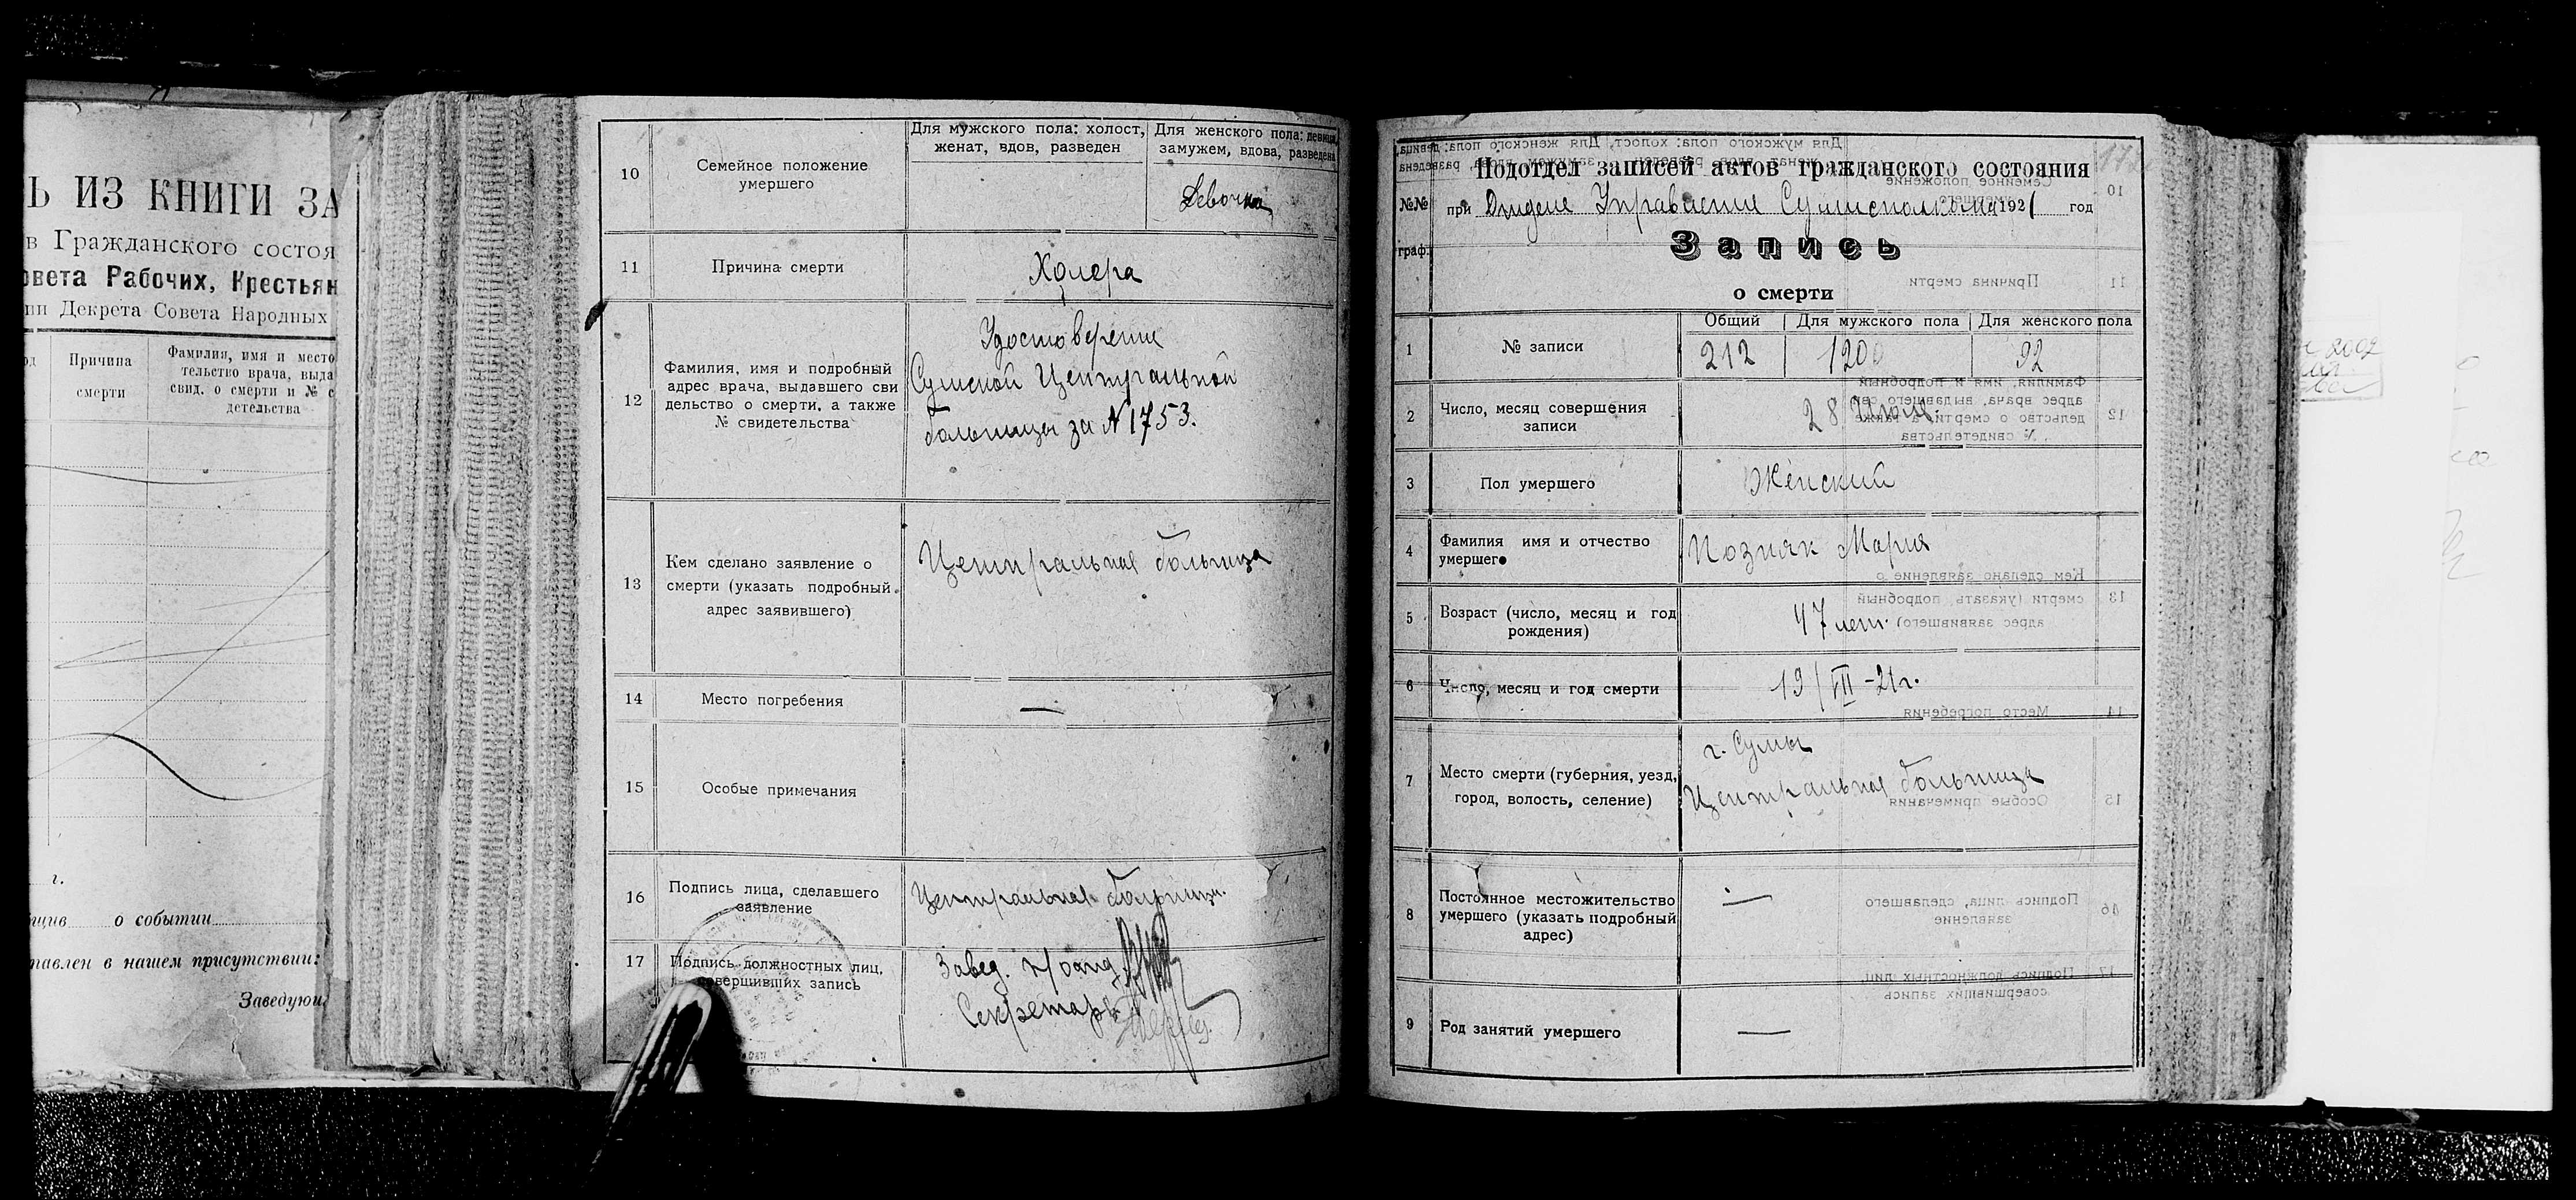 Ь ИЗ КНИГИ ЗА
в Гражданского состоя
овета Рабочих, Крестьян
ии Декрета Совета Народных
Причина
смерти
Фамилия, имя и место
тельство врача, выда
свид. о смерти и № с
детельства
г.
о событии
тавлен в нашем присутствии:
Заведующ
10
Семейное положение
умершего
Для мужского пола: холост,
женат, вдов, разведен
Для женского пола: девица,
замужем, вдова, разведена
Девочка
11
Причина смерти
Холера
12
Фамилия, имя и подробный
адрес врача, выдавшего сви
дельство о смерти, а также
№ свидетельства
Удостоверение
Сумской Центральной
больницы за N 1753.
13
Кем сделано заявление о
смерти (указать подробный
адрес заявившего)
Центральная больница
14
Место погребения
—
15
Особые примечания
16
Подпись лица, сделавшего
заявление
Центральная больниц.
17
Подпись должностных лиц,
совершивших запись
Завед. п/отд.
Секретарь
Подотдел записей актов гражданского состояния
№№
граф.
при Отделе Управления Сумисполкома 1921 год
Запись
о смерти
1
№ записи
Общий
Для мужского пола
Для женского пола
212
120
92
2
Число, месяц совершения
записи
28 Июля.
3
Пол умершего
Женский
4
Фамилия имя и отчество
умершего
Позняк Мария
5
Возраст (число, месяц и год
рождения)
47 лет.
6
Число, месяц и год смерти
19/VII-21г.
7
Место смерти (губерния, уезд,
город, волость, селение)
г. Сумы
Центральная больница
8
Постоянное местожительство
умершего (указать подробный
адрес)
—
9
Род занятий умершего
—